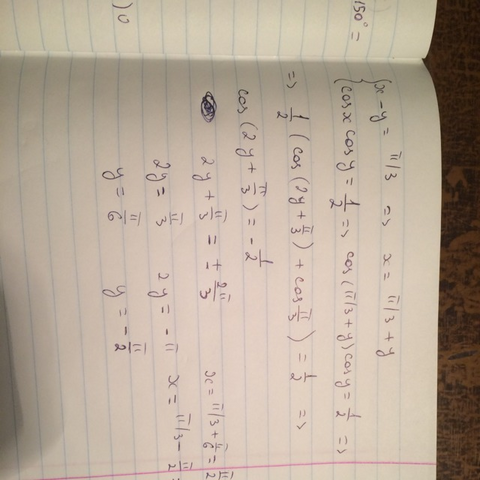 150° =
) 0
{ x - y = π/3 => x = π/3 + y
{ cosx cosy = 1/2 => cos (π/3 + y) cosy = 1/2 =>
=> 1/2 ( cos (2y + π/3) + cos π/3 ) = 1/2 =>
cos (2y + π/3) = - 1/2
2y + π/3 = ± 2π/3 x = π/3 + π/6 = π/2
2y = π/3 2y = - π x = π/3 - π/2 =
y = π/6 y = - π/2